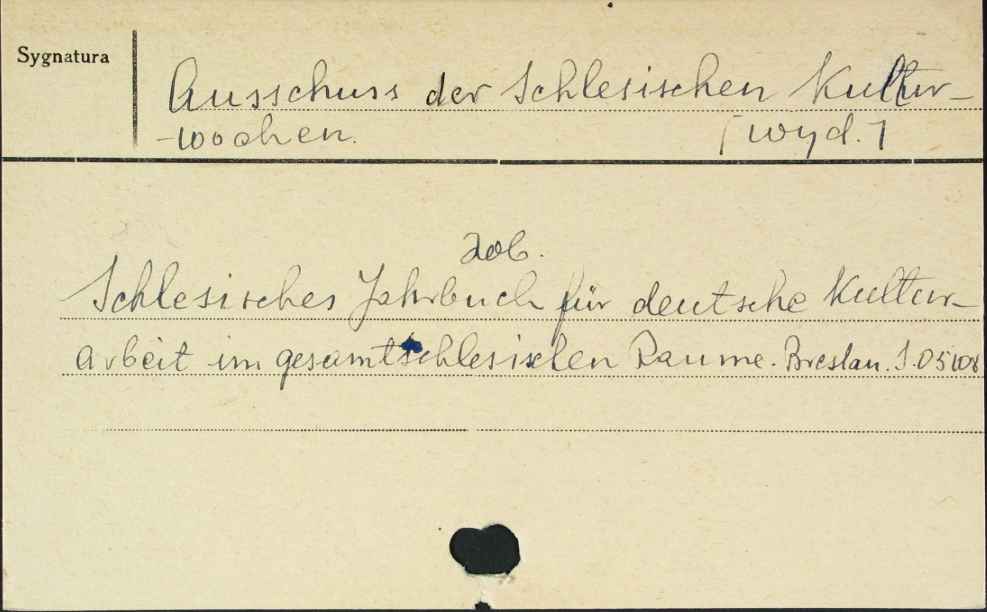 Sygnatura
Ausschuss der Schlesischen Kultur-
-wochen. [wyd.]
zob.
Schlesisches Jahrbuch für deutsche Kultur-
arbeit im gesamtschlesischen Raume. Breslau.